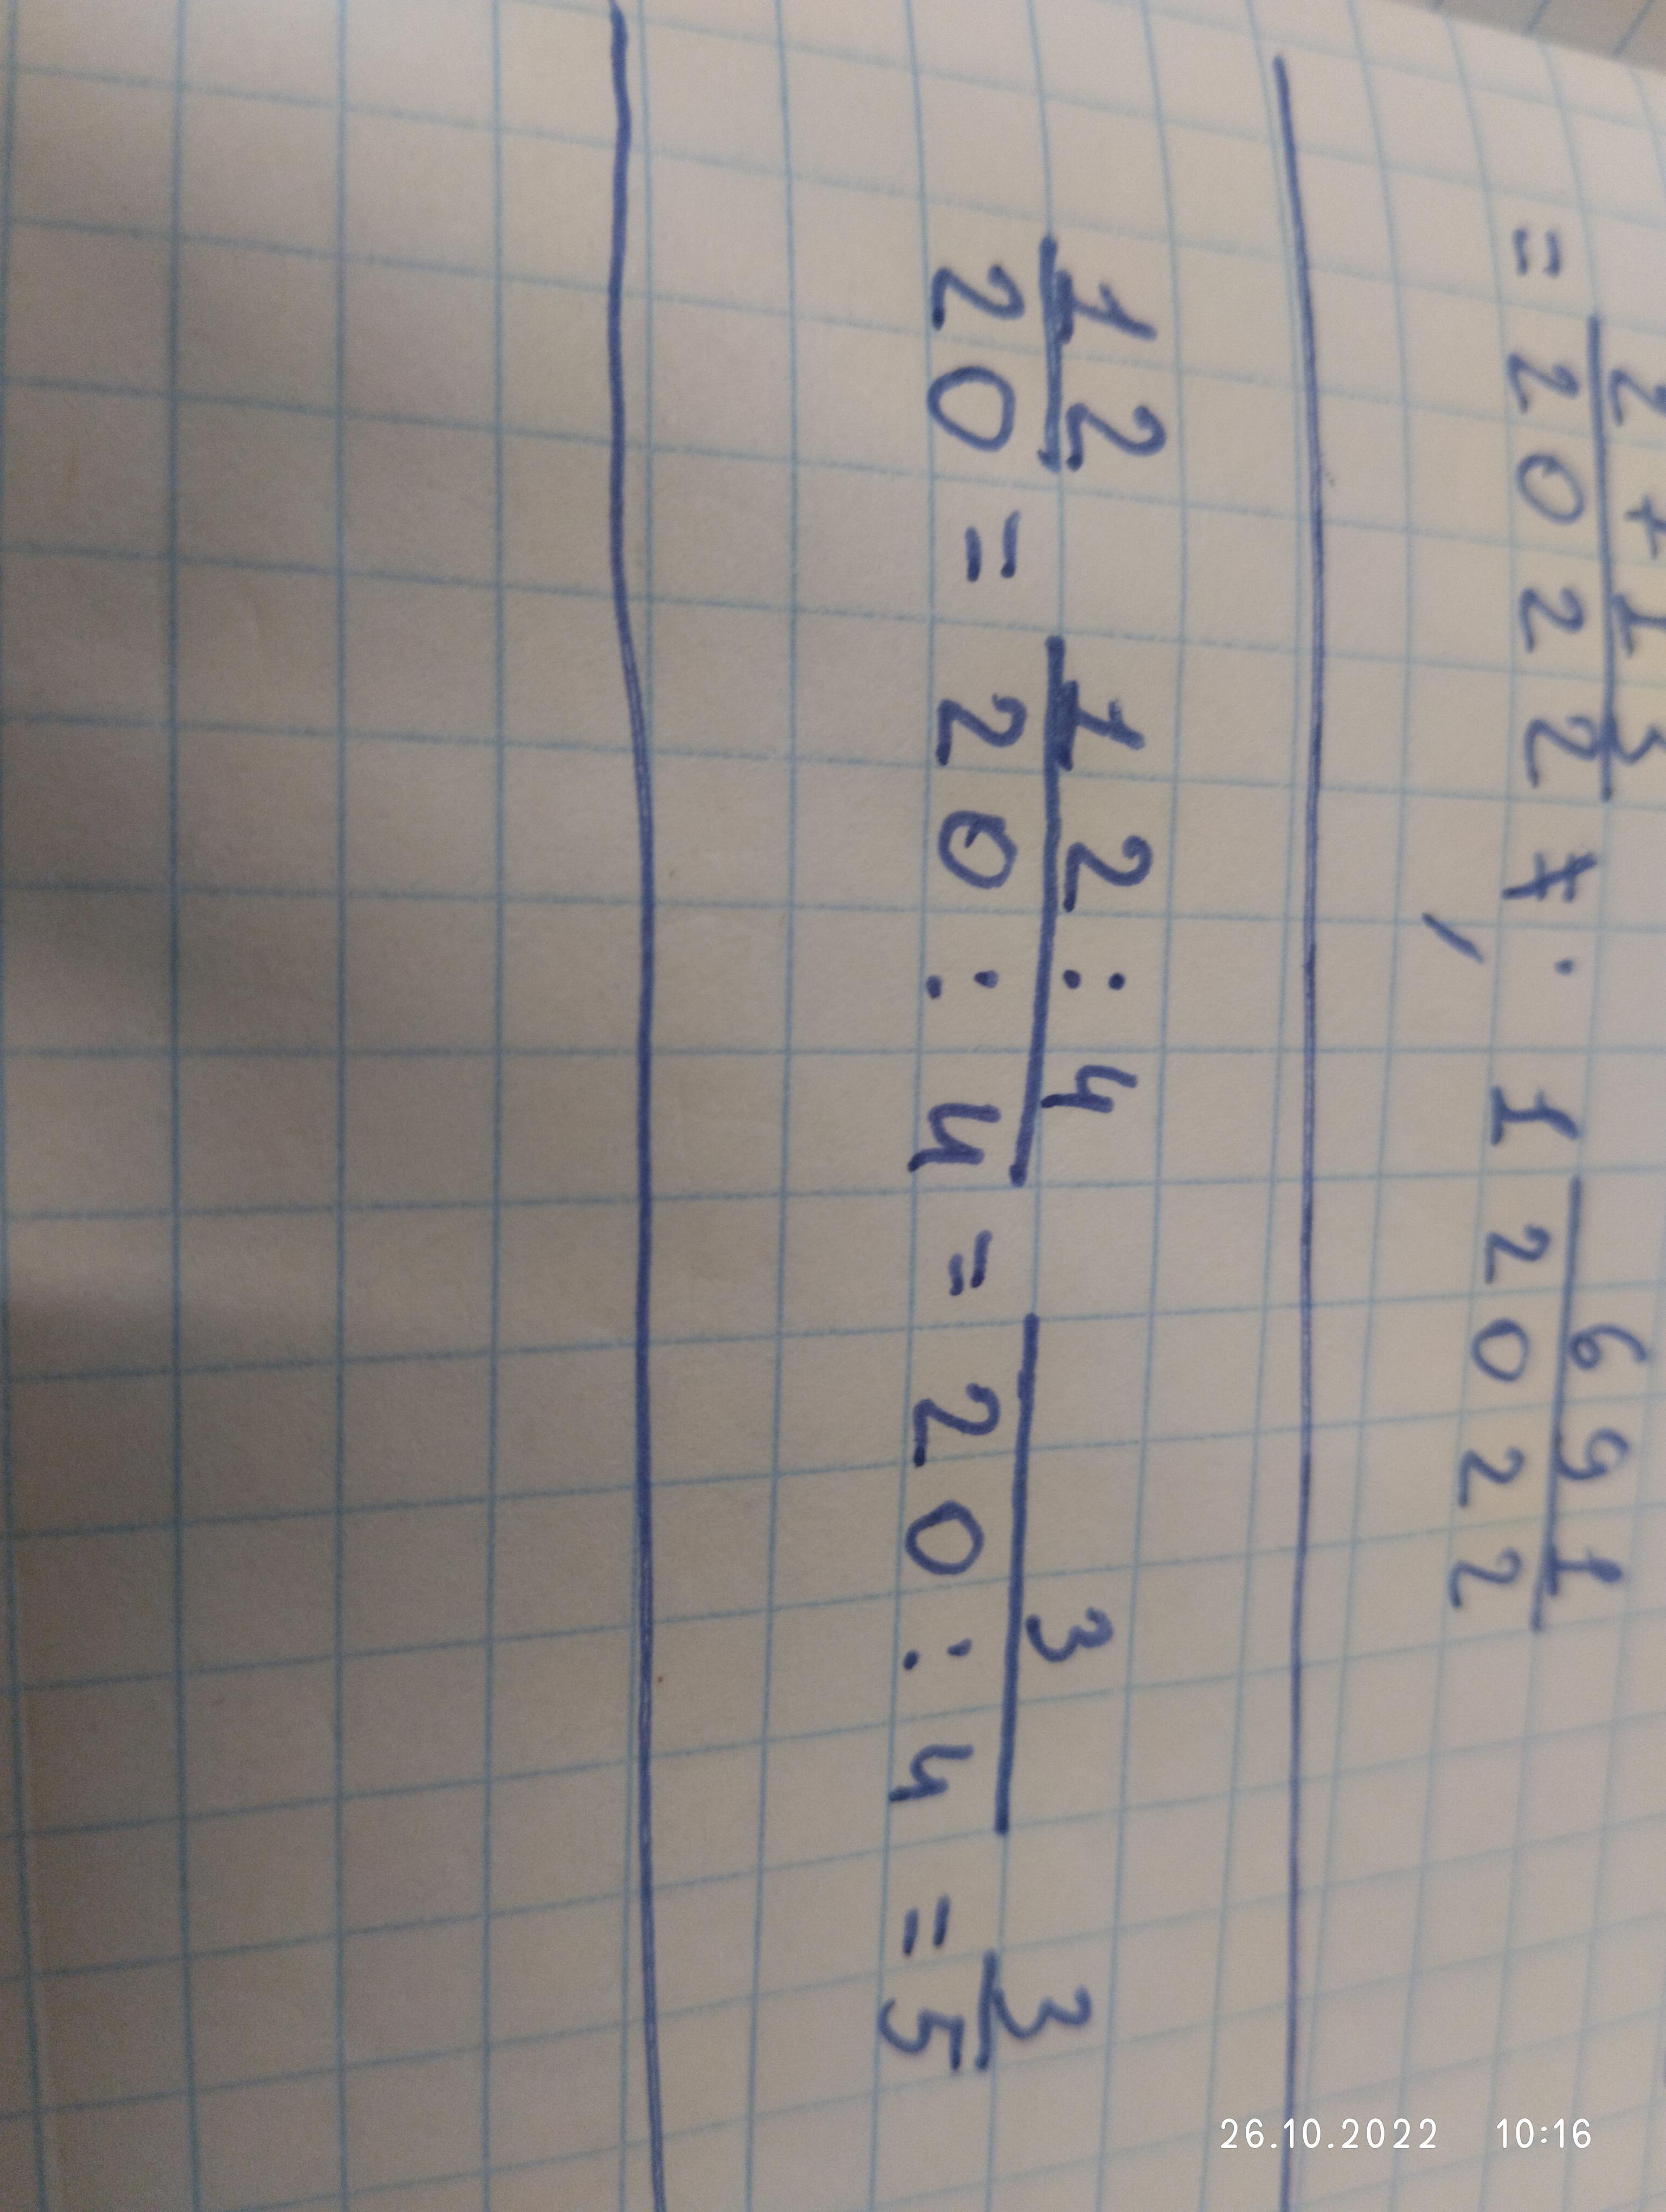 2 + 1 3
= 2 0 2 2 ; 1 6 9 1 / 2 0 2 2
12/20 = 12 : 4 / 20 : 4 = 3 / 20 : 4 = 3/5
26.10.2022 10:16